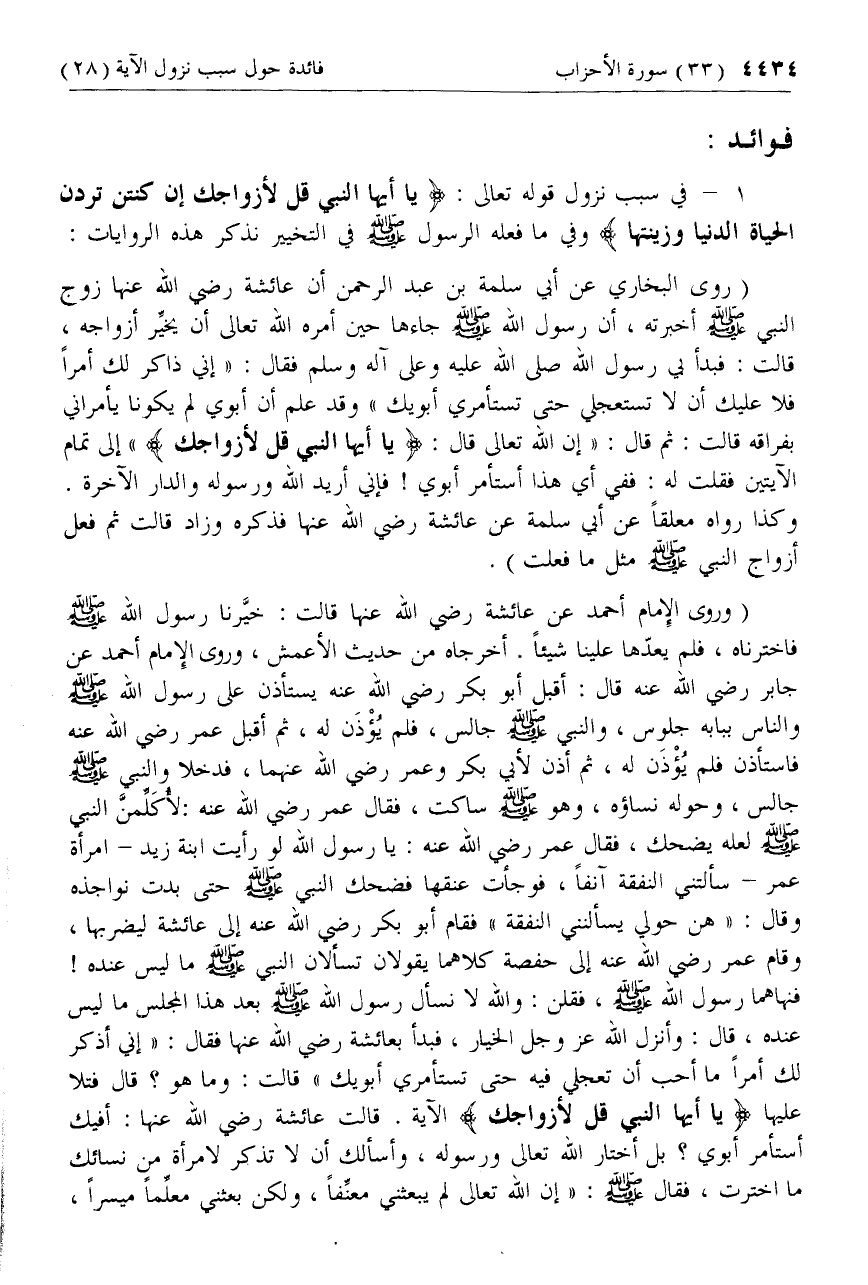 ٤٤٣٤ ( ٣٣ ) سورة الأحزاب فائدة حول سبب نزول الآية ( ٢٨ )
فـوائـد :
١ – في سبب نزول قوله تعالى : ﴿ يا أيها النبي قل لأزواجك إن كنتن تردن
الحياة الدنيا وزينتها ﴾ وفي ما فعله الرسول ﷺ في التخيير نذكر هذه الروايات :
( روى البخاري عن أبي سلمة بن عبد الرحمن أن عائشة رضي الله عنها زوج
النبي ﷺ أخبرته ، أن رسول الله ﷺ جاءها حين أمره الله تعالى أن يخيِّر أزواجه ،
قالت : فبدأ بي رسول الله صلى الله عليه وعلى آله وسلم فقال : « إني ذاكر لك أمراً
فلا عليك أن لا تستعجلي حتى تستأمري أبويك » وقد علم أن أبوي لم يكونا يأمراني
بفراقه قالت : ثم قال : « إن الله تعالى قال : ﴿ يا أيها النبي قل لأزواجك ﴾ » إلى تمام
الآيتين فقلت له : ففي أي هذا أستأمر أبوي ! فإني أريد الله ورسوله والدار الآخرة .
وكذا رواه معلقاً عن أبي سلمة عن عائشة رضي الله عنها فذكره وزاد قالت ثم فعل
أزواج النبي ﷺ مثل ما فعلت ) .
( وروى الإمام أحمد عن عائشة رضي الله عنها قالت : خيَّرنا رسول الله ﷺ
فاخترناه ، فلم يعدّها علينا شيئاً . أخرجاه من حديث الأعمش ، وروى الإمام أحمد عن
جابر رضي الله عنه قال : أقبل أبو بكر رضي الله عنه يستأذن على رسول الله ﷺ
والناس ببابه جلوس ، والنبي ﷺ جالس ، فلم يُؤْذَن له ، ثم أقبل عمر رضي الله عنه
فاستأذن فلم يُؤْذَن له ، ثم أذن لأبي بكر وعمر رضي الله عنهما ، فدخلا والنبي ﷺ
جالس ، وحوله نساؤه ، وهو ﷺ ساكت ، فقال عمر رضي الله عنه :لأُكَلِّمنَّ النبي
ﷺ لعله يضحك ، فقال عمر رضي الله عنه : يا رسول الله لو رأيت ابنة زيد – امرأة
عمر – سألتني النفقة آنفاً ، فوجأت عنقها فضحك النبي ﷺ حتى بدت نواجذه
وقال : « هن حولي يسألنني النفقة » فقام أبو بكر رضي الله عنه إلى عائشة ليضربها ،
وقام عمر رضي الله عنه إلى حفصة كلاهما يقولان تسألان النبي ﷺ ما ليس عنده !
فنهاهما رسول الله ﷺ ، فقلن : والله لا نسأل رسول الله ﷺ بعد هذا المجلس ما ليس
عنده ، قال : وأنزل الله عز وجل الخيار ، فبدأ بعائشة رضي الله عنها فقال : « إني أذكر
لك أمراً ما أحب أن تعجلي فيه حتى تستأمري أبويك » قالت : وما هو ؟ قال فتلا
عليها ﴿ يا أيها النبي قل لأزواجك ﴾ الآية . قالت عائشة رضي الله عنها : أفيك
أستأمر أبوي ؟ بل أختار الله تعالى ورسوله ، وأسألك أن لا تذكر لامرأة من نسائك
ما اخترت ، فقال ﷺ : « إن الله تعالى لم يبعثني معنِّفاً ، ولكن بعثني معلِّماً ميسراً ،